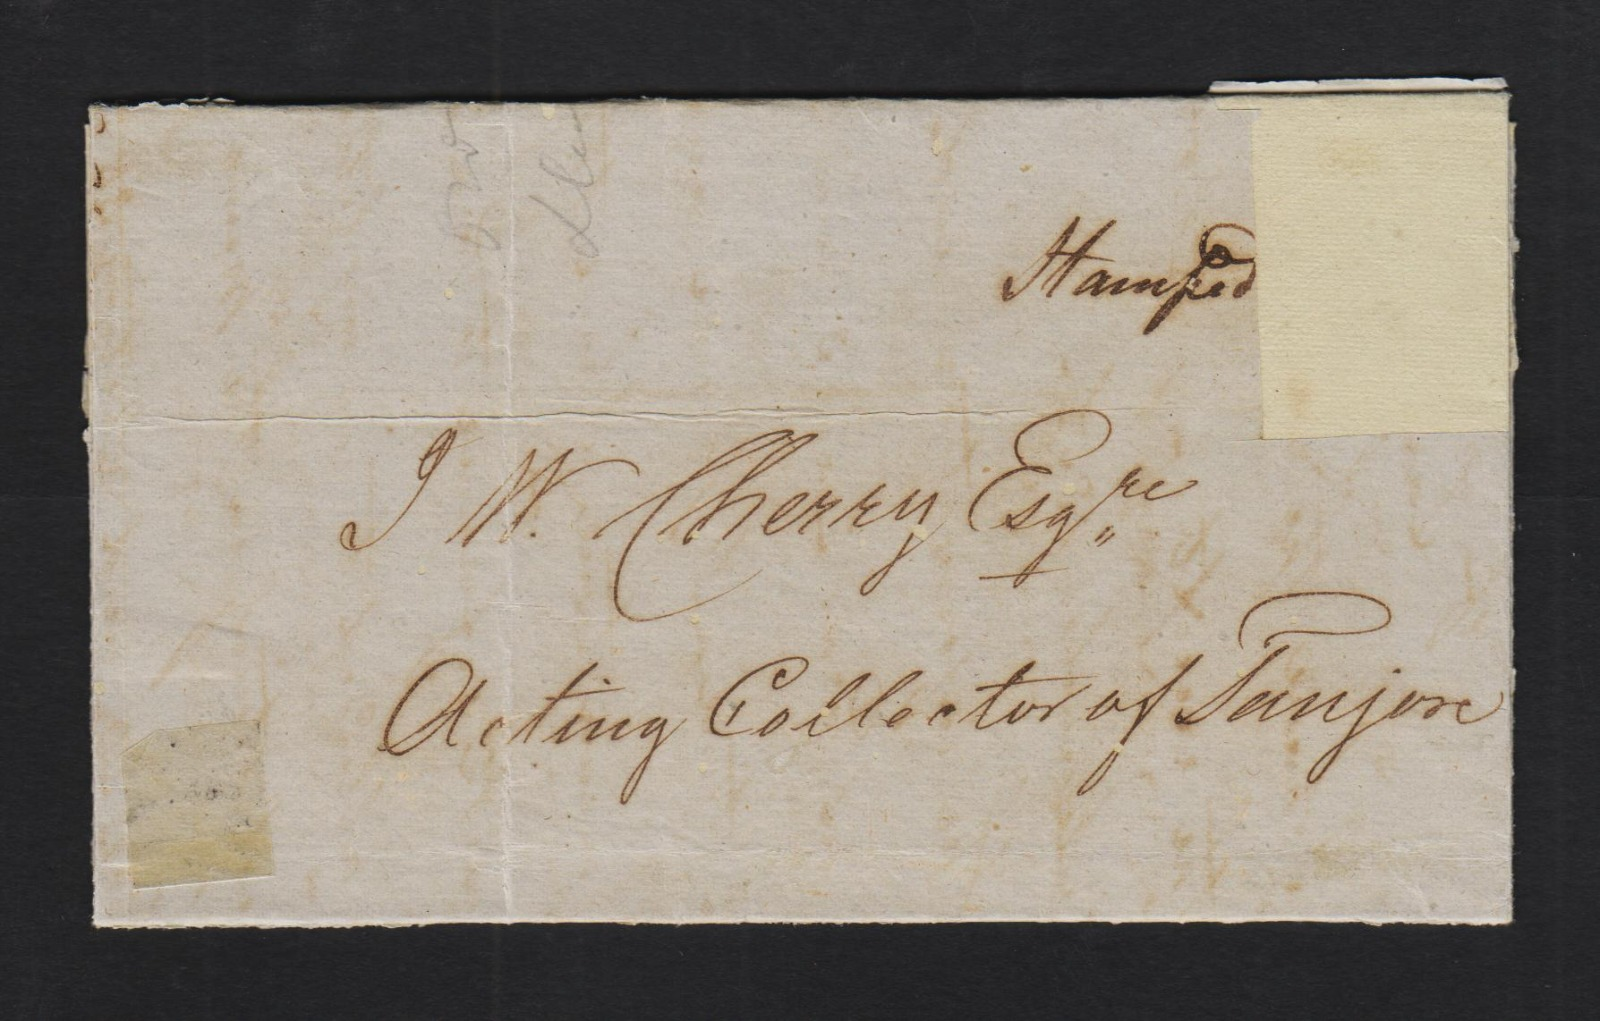 Stamped
J W. Cherry Esqre
Acting Collector of Tanjore